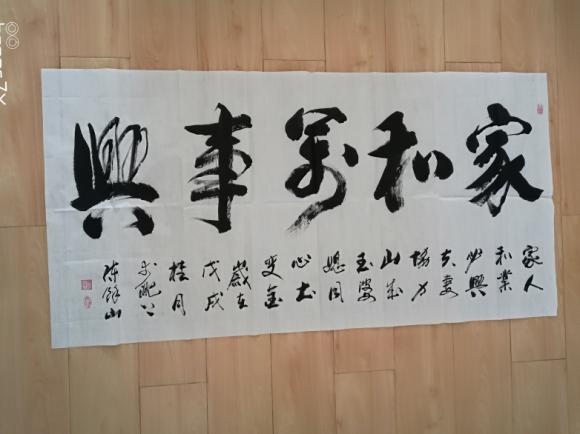 家和萬事興
家人
和業
必興
夫妻
協力
山成
玉婆
媳同
心土
变金
歲在
戊戌
桂月
山